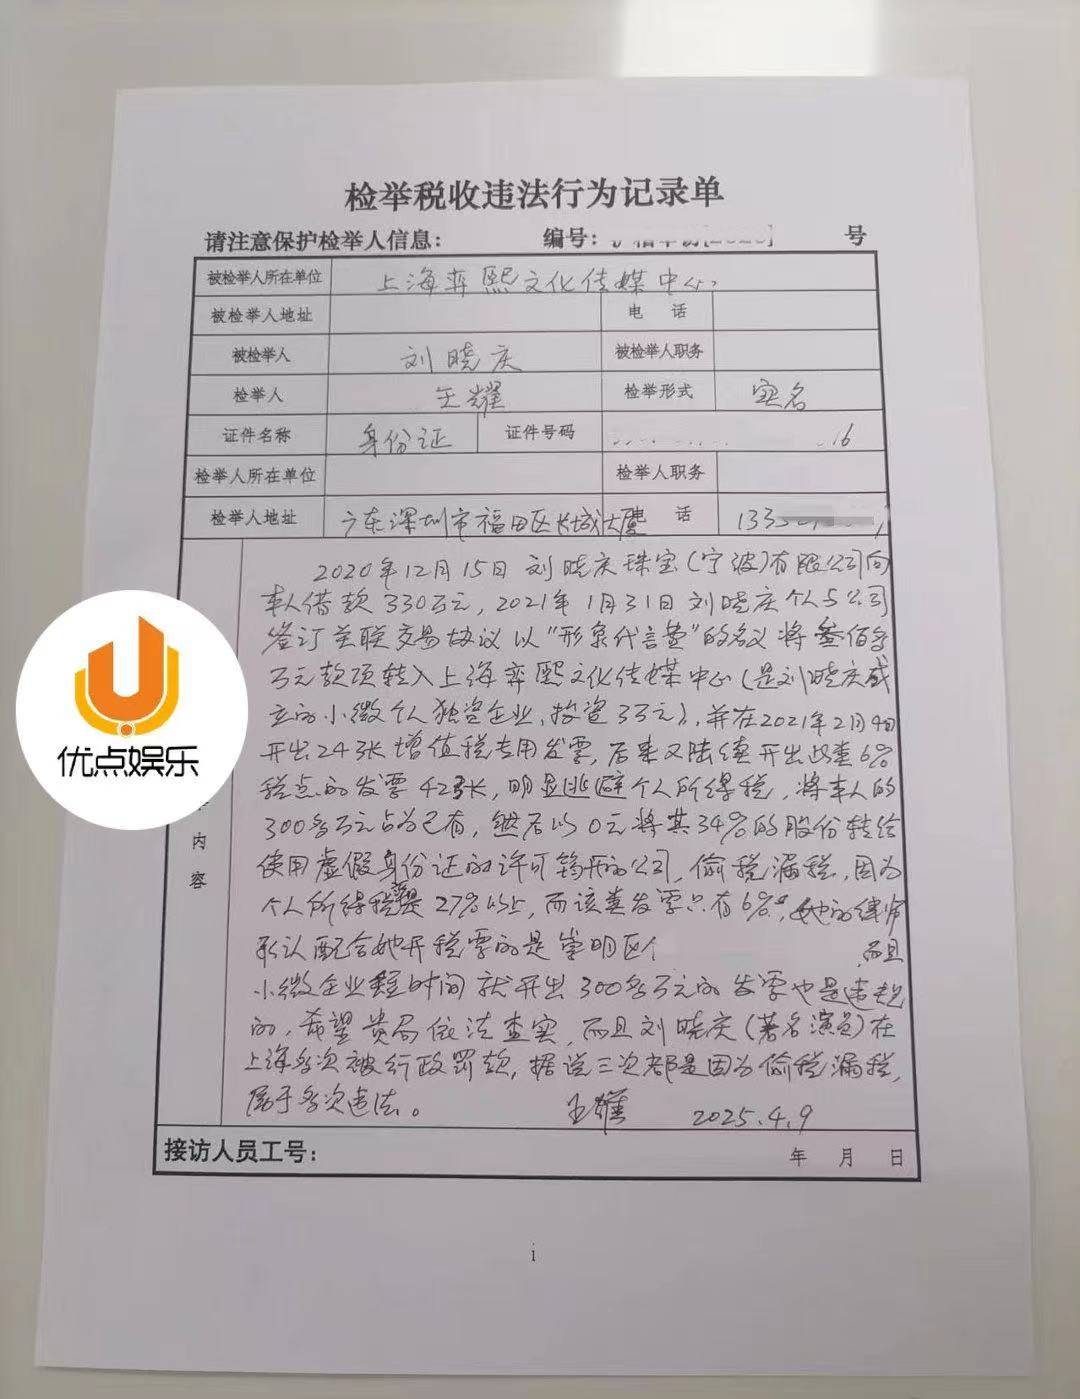 检举税收违法行为记录单
请注意保护检举人信息： 编号： 号
被检举人所在单位 上海弈熙文化传媒中心
被检举人地址 电 话
被检举人 刘晓庆 被检举人职务
检举人 王耀 检举形式 实名
证件名称 身份证 证件号码 16
检举人所在单位 检举人职务
检举人地址 广东深圳市福田区长城大厦 电 话 133
2020年12月15日刘晓庆珠宝(宁波)有限公司向
本人借款330万元，2021年1月31日刘晓庆个人与公司
签订关联交易协议以"形象代言费"的名义将叁佰多
万元款项转入上海弈熙文化传媒中心(是刘晓庆成
立的小微个人独资企业，投资3万元)，并在2021年2月4日
开出24张增值税专用发票，后来又陆续开出此类6%
税点的发票42张，明显逃避个人所得税，将本人的
300多万元占为己有，然后以0元将其34%的股份转给
使用虚假身份证的许可筠开的公司，偷税漏税，因为
个人所得税率是27%以上，而该类发票只有6%，她的律师
承认配合她开税票的是崇明区个 而且
小微企业短时间就开出300多万元的发票也是违规
的，希望贵局依法查实，而且刘晓庆(著名演员)在
上海多次被行政罚款，据说三次都是因为偷税漏税，
属于多次违法。 王耀 2025.4.9
内
容
接访人员工号： 年 月 日
i
优点娱乐